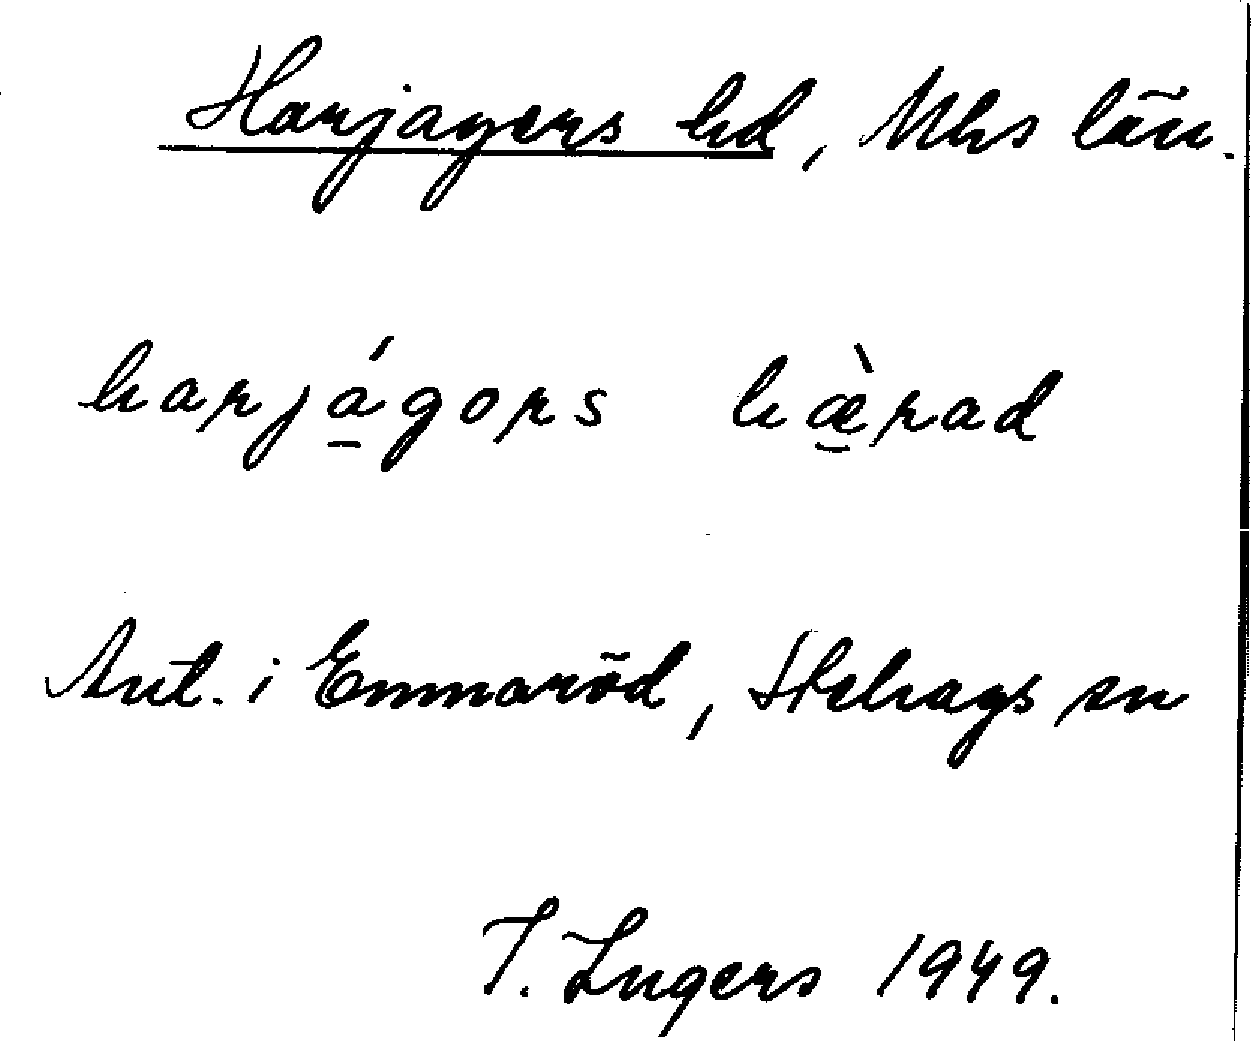 Harjagers hd, Mhs län.
harjágors hæ̀rad
Ant. i Emmaröd, Hehags sn
I. Ingers 1949.